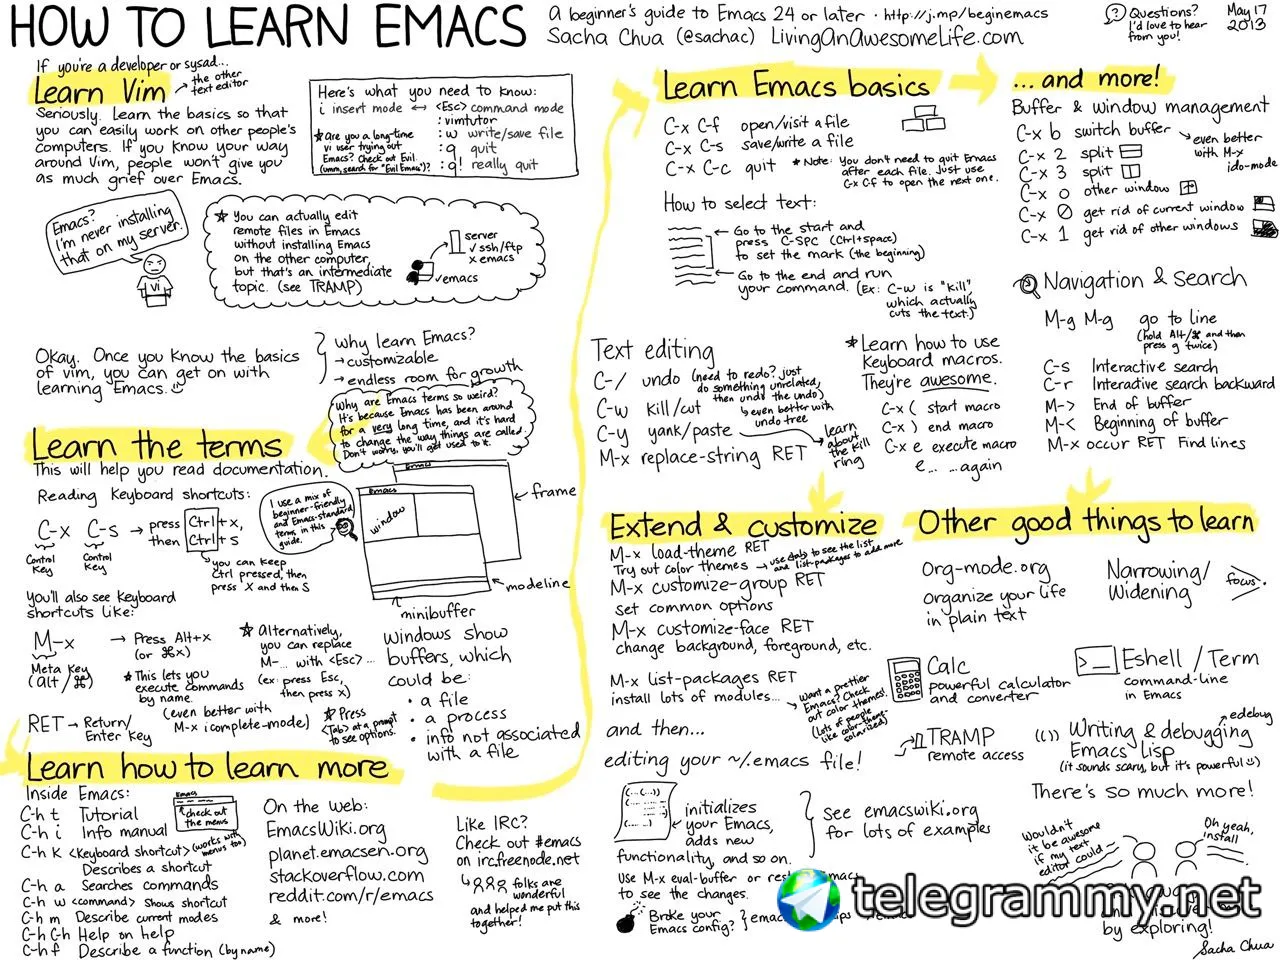 HOW TO LEARN EMACS
A beginner's guide to Emacs 24 or later · http://j.mp/beginemacs
Sacha Chua (@sachac) LivingAnAwesomeLife.com
Questions?
I'd love to hear
from you!
May 17
2013
If you're a developer or sysad...
Learn Vim
→ the other
text editor
Seriously. Learn the basics so that
you can easily work on other people's
computers. If you know your way
around Vim, people won't give you
as much grief over Emacs.
Here's what you need to know:
i insert mode ↔ <Esc> command mode
:vimtutor
:w write/save file
:q quit
:q! really quit
★ Are you a long-time
vi user trying out
Emacs? Check out Evil.
(umm, search for "Evil Emacs")?
Emacs?
I'm never installing
that on my server.
vi
★ You can actually edit
remote files in Emacs
without installing Emacs
on the other computer,
but that's an intermediate
topic. (see TRAMP)
server
✓ ssh/ftp
x emacs
✓emacs
Okay. Once you know the basics
of vim, you can get on with
learning Emacs.
why learn Emacs?
→ customizable
→ endless room for growth
Why are Emacs terms so weird?
It's because Emacs has been around
for a very long time, and it's hard
to change the way things are called.
Don't worry, you'll get used to it.
Learn the terms
This will help you read documentation.
Reading keyboard shortcuts:
C-x C-s → press Ctrl+x,
then Ctrl+s
Control
key
Control
key
you can keep
Ctrl pressed, then
press X and then S
I use a mix of
beginner-friendly
and Emacs-standard
terms in this
guide.
Emacs
Emacs
window
← frame
← modeline
minibuffer
You'll also see keyboard
shortcuts like:
M-x → Press Alt+x
(or ⌘x)
Meta key
(alt/⌘)
★ This lets you
execute commands
by name.
(even better with
M-x icomplete-mode)
★ Alternatively,
you can replace
M-... with <Esc>...
(ex: press Esc,
then press x)
RET → Return/
Enter key
★ Press
<Tab> at a prompt
to see options.
Windows show
buffers, which
could be:
· a file
· a process
· info not associated
with a file
Learn how to learn more
Inside Emacs:
C-h t Tutorial
C-h i Info manual
C-h k <keyboard shortcut> (works with
menus too)
Describes a shortcut
C-h a Searches commands
C-h w <command> Shows shortcut
C-h m Describe current modes
C-h C-h Help on help
C-h f Describe a function (by name)
Emacs
check out
the menus
On the web:
EmacsWiki.org
planet.emacsen.org
stackoverflow.com
reddit.com/r/emacs
& more!
Like IRC?
Check out #emacs
on irc.freenode.net
folks are
wonderful
and helped me put this
together!
Learn Emacs basics
C-x C-f open/visit a file
C-x C-s save/write a file
C-x C-c quit
* Note: You don't need to quit Emacs
after each file. Just use
C-x C-f to open the next one.
How to select text:
← Go to the start and
press C-SPC (Ctrl+space)
to set the mark (the beginning)
← Go to the end and run
your command. (Ex: C-w is "kill",
which actually
cuts the text.)
Text editing
C-/ undo (need to redo? just
do something unrelated,
then undo the undo)
↳ even better with
undo tree
C-w kill/cut
C-y yank/paste
learn
about
the kill
ring
M-x replace-string RET
★ Learn how to use
keyboard macros.
They're awesome.
C-x ( start macro
C-x ) end macro
C-x e execute macro
e... ...again
...and more!
Buffer & window management
C-x b switch buffer
even better
with M-x
ido-mode
C-x 2 split
C-x 3 split
C-x o other window
C-x 0 get rid of current window
C-x 1 get rid of other windows
Navigation & Search
M-g M-g go to line
(hold Alt/⌘ and then
press g twice)
C-s Interactive search
C-r Interactive search backward
M-> End of buffer
M-< Beginning of buffer
M-x occur RET Find lines
Extend & customize
M-x load-theme RET
Try out color themes → use <tab> to see the list
and list-packages to add more
M-x customize-group RET
set common options
M-x customize-face RET
change background, foreground, etc.
M-x list-packages RET
install lots of modules...
Want a prettier
Emacs? Check
out color themes!
(Lots of people
like color-theme-
solarized)
and then...
editing your ~/.emacs file!
(...(...))
initializes
your Emacs,
adds new
functionality, and so on.
see emacswiki.org
for lots of examples
Use M-x eval-buffer or
to see the changes.
Broke your
Emacs config?
Other good things to learn
org-mode.org
organize your life
in plain text
Narrowing/
Widening
focus.
Calc
powerful calculator
and converter
>_
Eshell / Term
command-line
in Emacs
TRAMP
remote access
(()) Writing & debugging
Emacs Lisp
edebug
(it sounds scary, but it's powerful)
There's so much more!
Wouldn't
it be awesome
if my text
editor could—
Oh yeah,
install
by exploring!
Sacha Chua
telegrammy.net